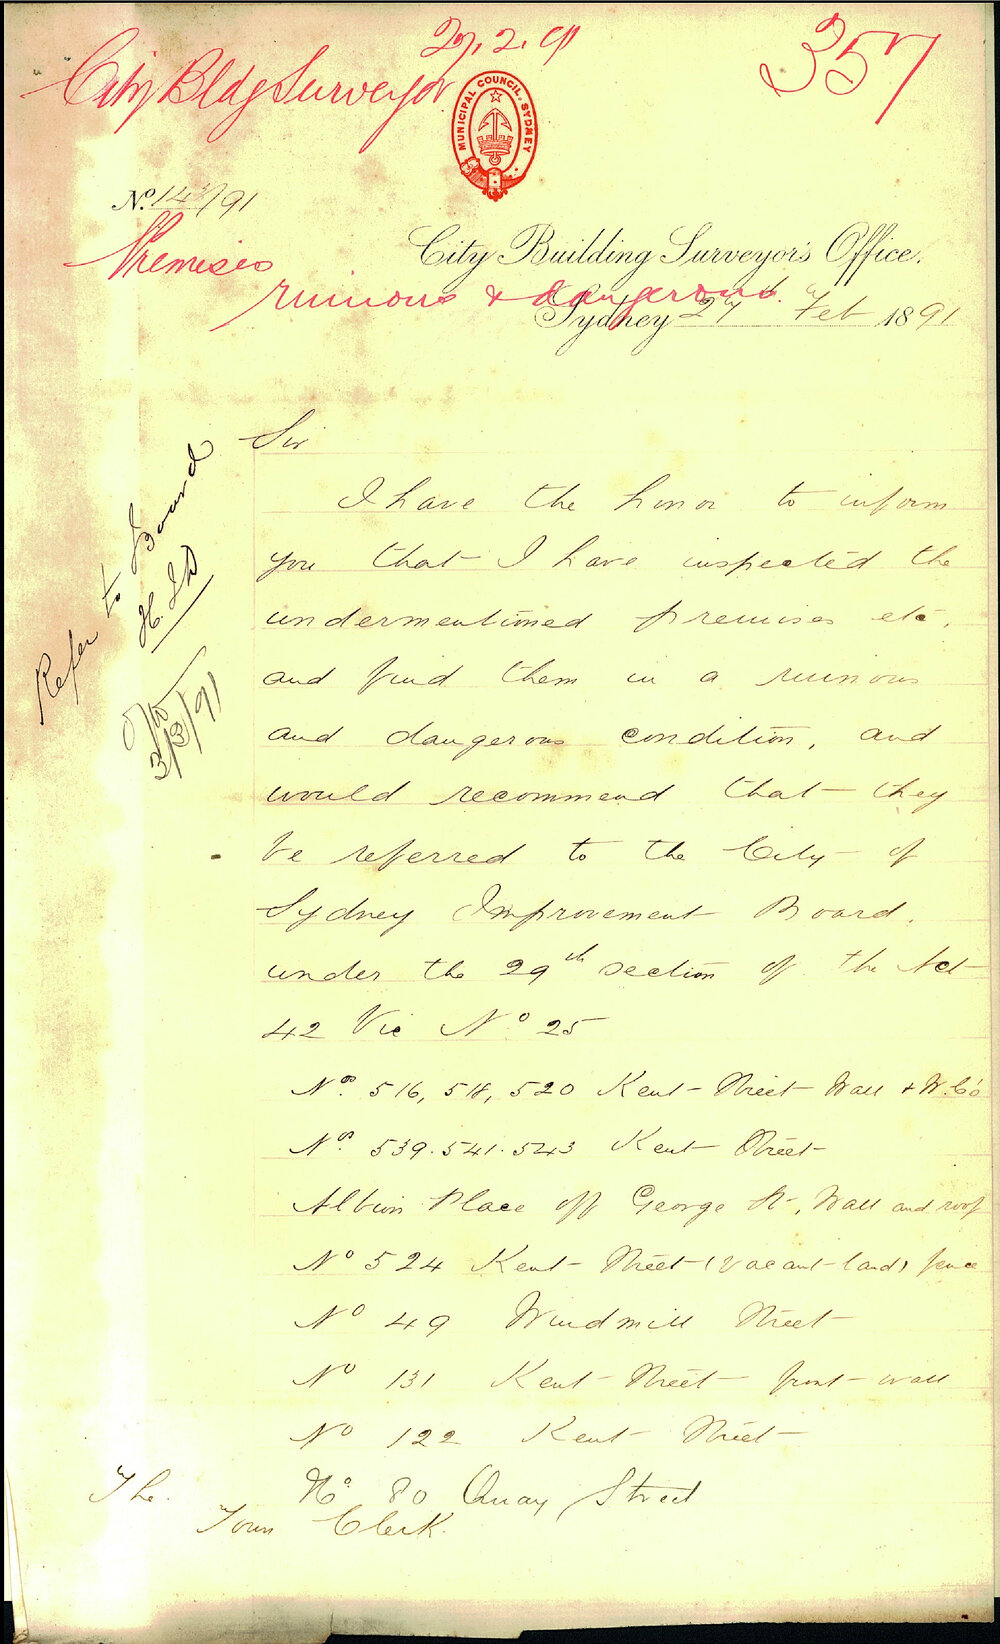 27.2.91
357
City Bldg Surveyor
MUNICIPAL COUNCIL. SYDNEY
No. 143/91
Premises
ruinous & dangerous
City Building Surveyor's Office.
Sydney 27th Feb 1891
Refer to Board
3/3/91
Sir
I have the honor to inform
you that I have inspected the
undermentioned premises etc.
and find them in a ruinous
and dangerous condition, and
would recommend that they
be referred to the City of
Sydney Improvement Board,
under the 29th section of the Act
42 Vic No 25
Nos. 516, 518, 520 Kent Street Wall & W.Cs
Nos. 539. 541. 543 Kent Street
Albion Place off George St, Wall and roof
No 524 Kent Street (vacant land) fence
No 49 Windmill Street
No 131 Kent Street front wall
No 122 Kent Street
No 80 Quay Street
The
Town Clerk.